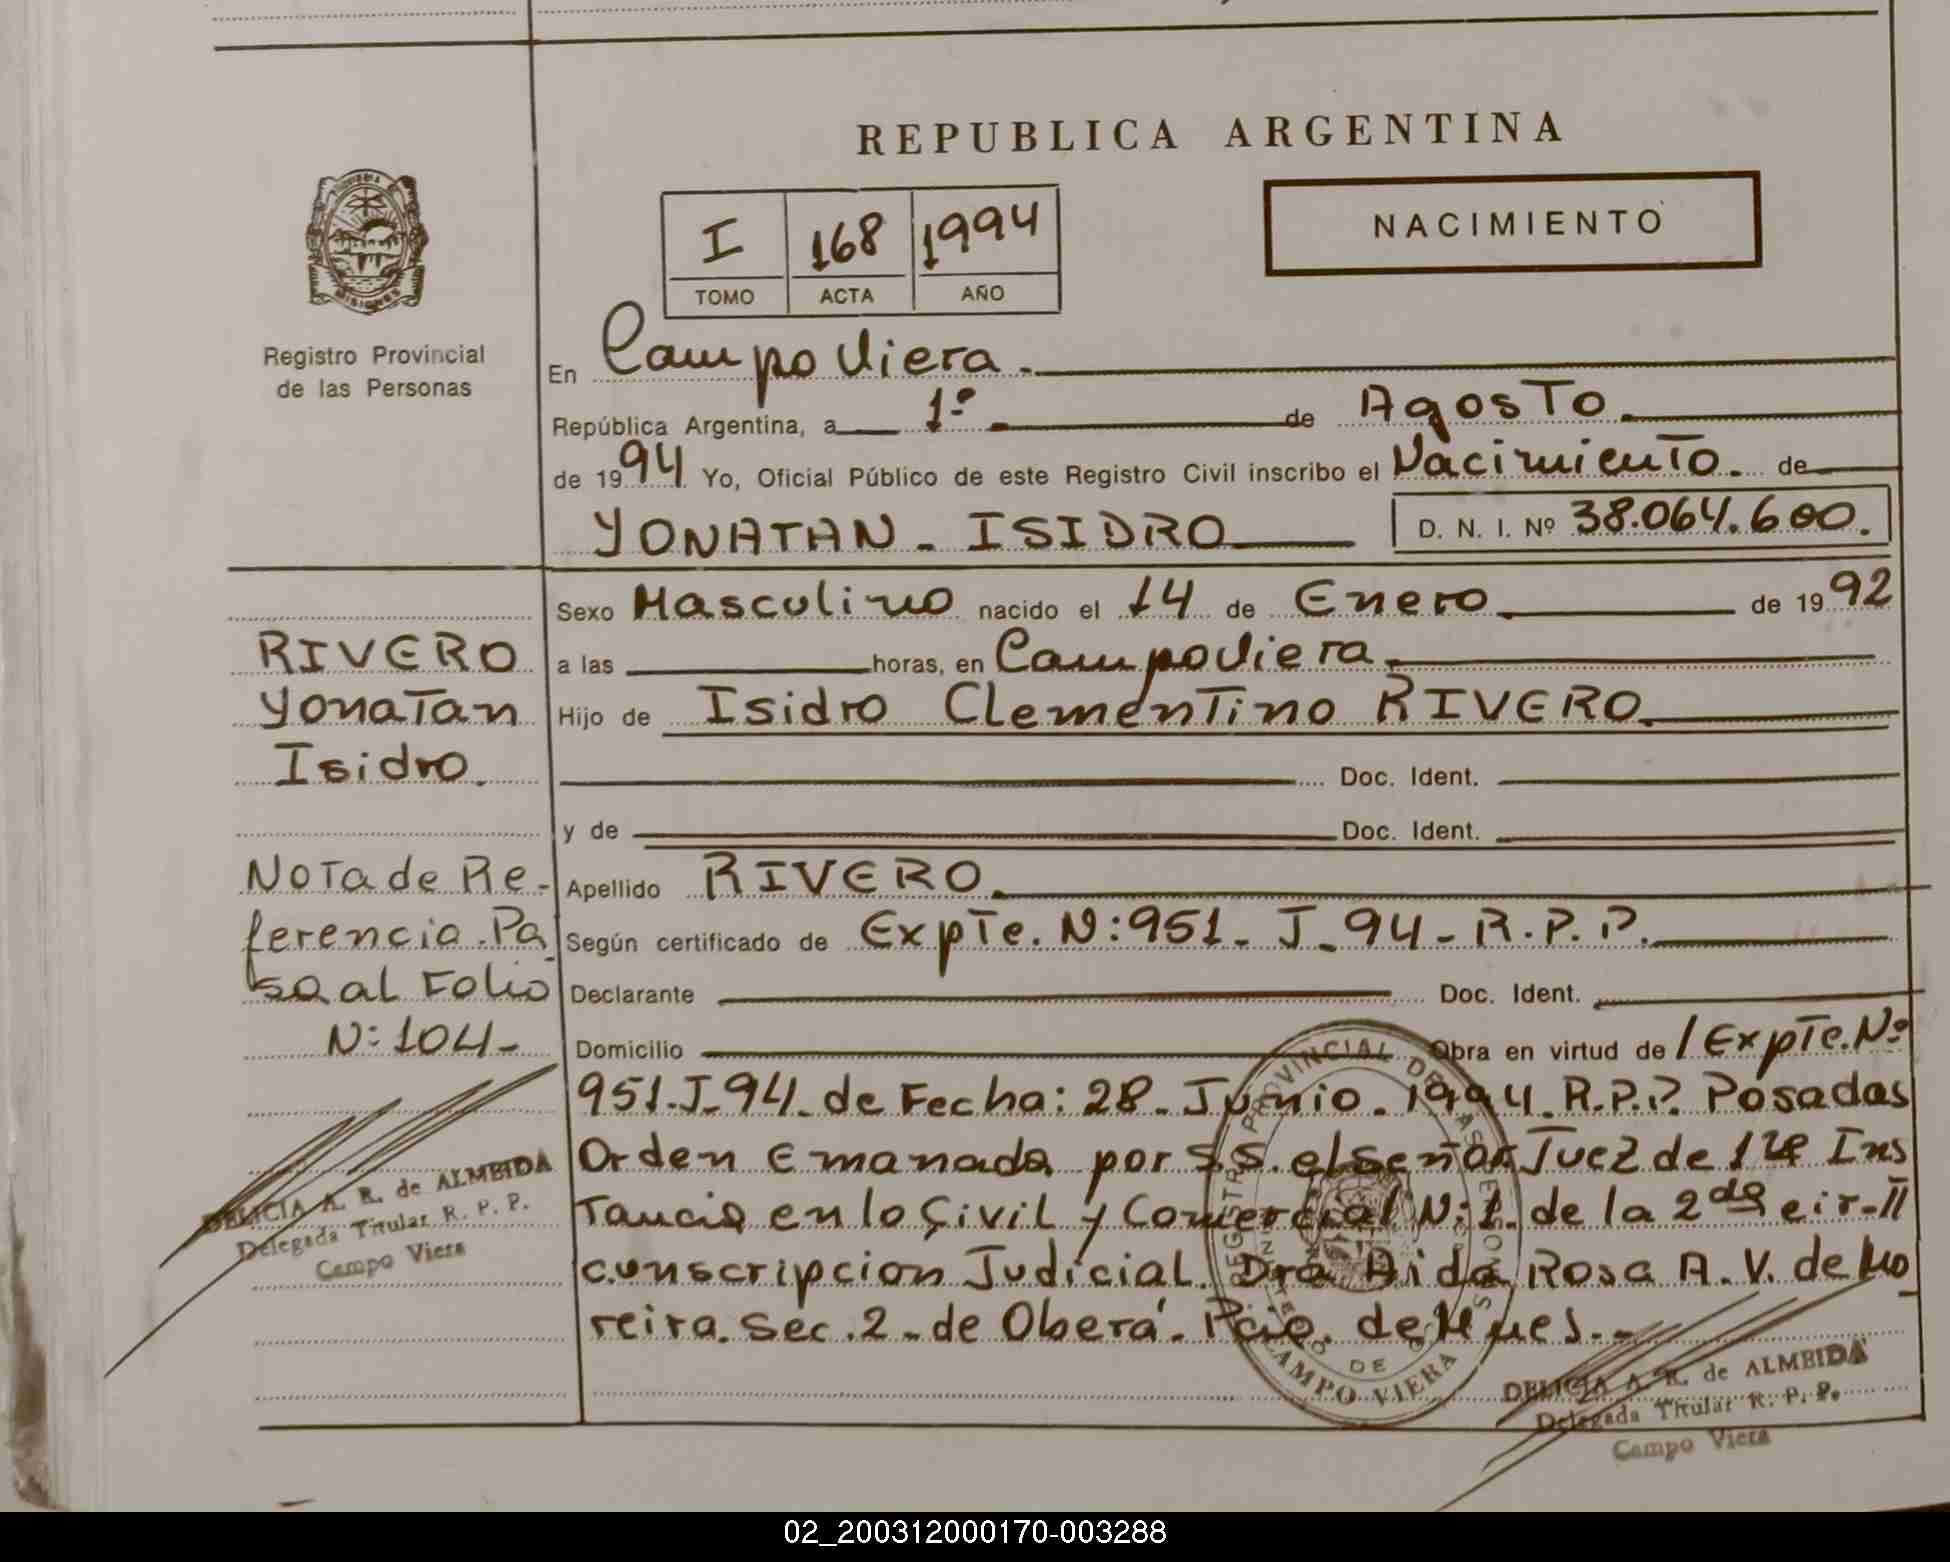 REPUBLICA ARGENTINA
NACIMIENTO
I 168 1994
TOMO ACTA AÑO
MISIONES
Registro Provincial
de las Personas
En Campo Viera.
República Argentina, a 1º de Agosto.
de 1994 Yo, Oficial Público de este Registro Civil inscribo el Nacimiento. de
YONATAN - ISIDRO
D. N. I. Nº 38.064.600.
Sexo Masculino nacido el 14 de Enero de 1992
a las horas, en Campo Viera.
Hijo de Isidro Clementino RIVERO.
Doc. Ident.
y de Doc. Ident.
Apellido RIVERO.
Según certificado de Expte. N:951- J-94- R.P.P.
Declarante Doc. Ident.
Domicilio Obra en virtud de / Expte. Nº
951.J-94- de Fecha: 28- Junio- 1994. R.P.P. Posadas
Orden Emanada por S.S. el señor Juez de Ins
tancia en lo Civil y Comercial N:1. de la 2da cir-
cunscripcion Judicial. Dra Aida Rosa A. V. de Mo
reira. Sec. 2- de Oberá- Pcia. de Mnes.-
RIVERO
Yonatan
Isidro.
Nota de Re-
ferencia. Pa
sa al Folio
N:104-
DELICIA A. R. de ALMEIDA
Delegada Titular R. P. P.
Campo Viera
REGISTRO PROVINCIAL DE LAS PERSONAS
CAMPO VIERA
DELICIA A. R. de ALMEIDA
Delegada Titular R. P. P.
Campo Viera
02_200312000170-003288